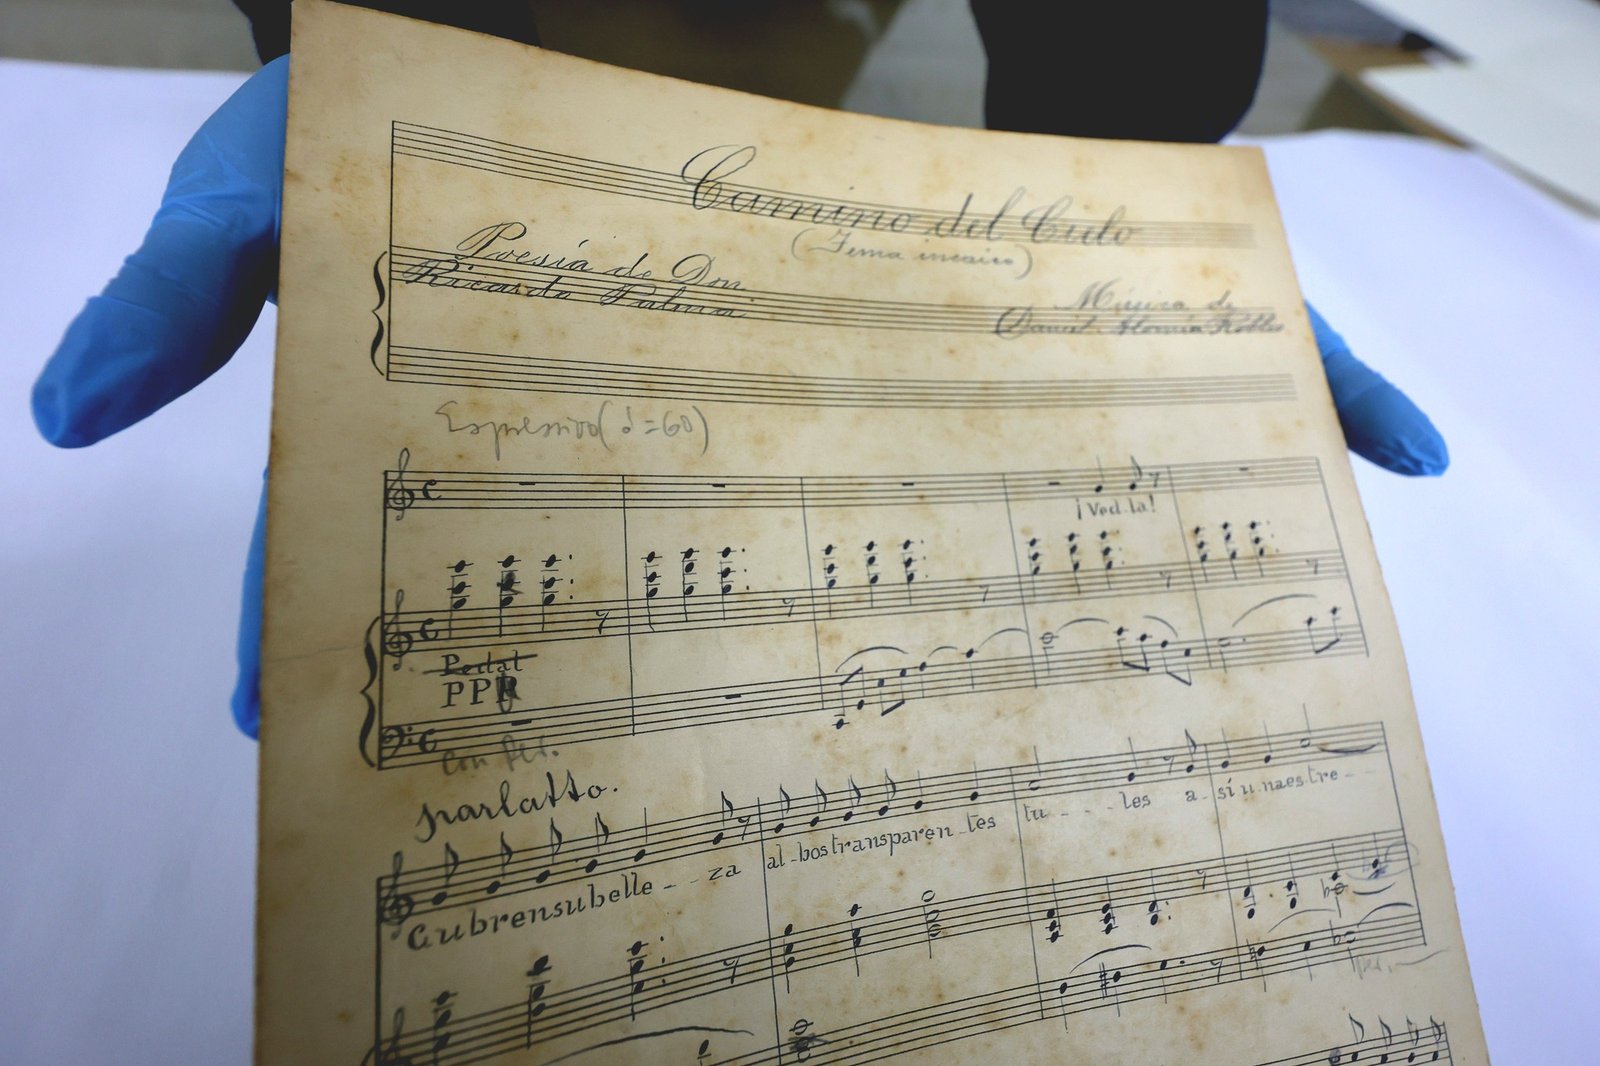 Camino del Cielo
(Tema incaico)
Poesía de Don
Ricardo Palma
Música de
Daniel Alomía Robles
Espressivo (♩=60)
¡Ved-la!
Pedal
PPP
Con Ped.
parlatto.
Cubrensubelle--za al-bostransparen-tes tu---les a-síunaestre--
Ped.